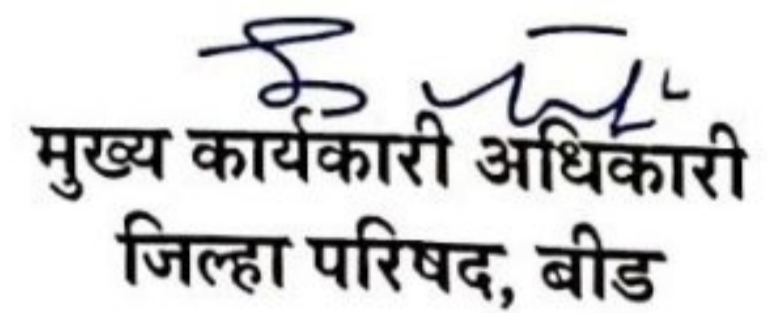 मुख्य कार्यकारी अधिकारी
जिल्हा परिषद, बीड